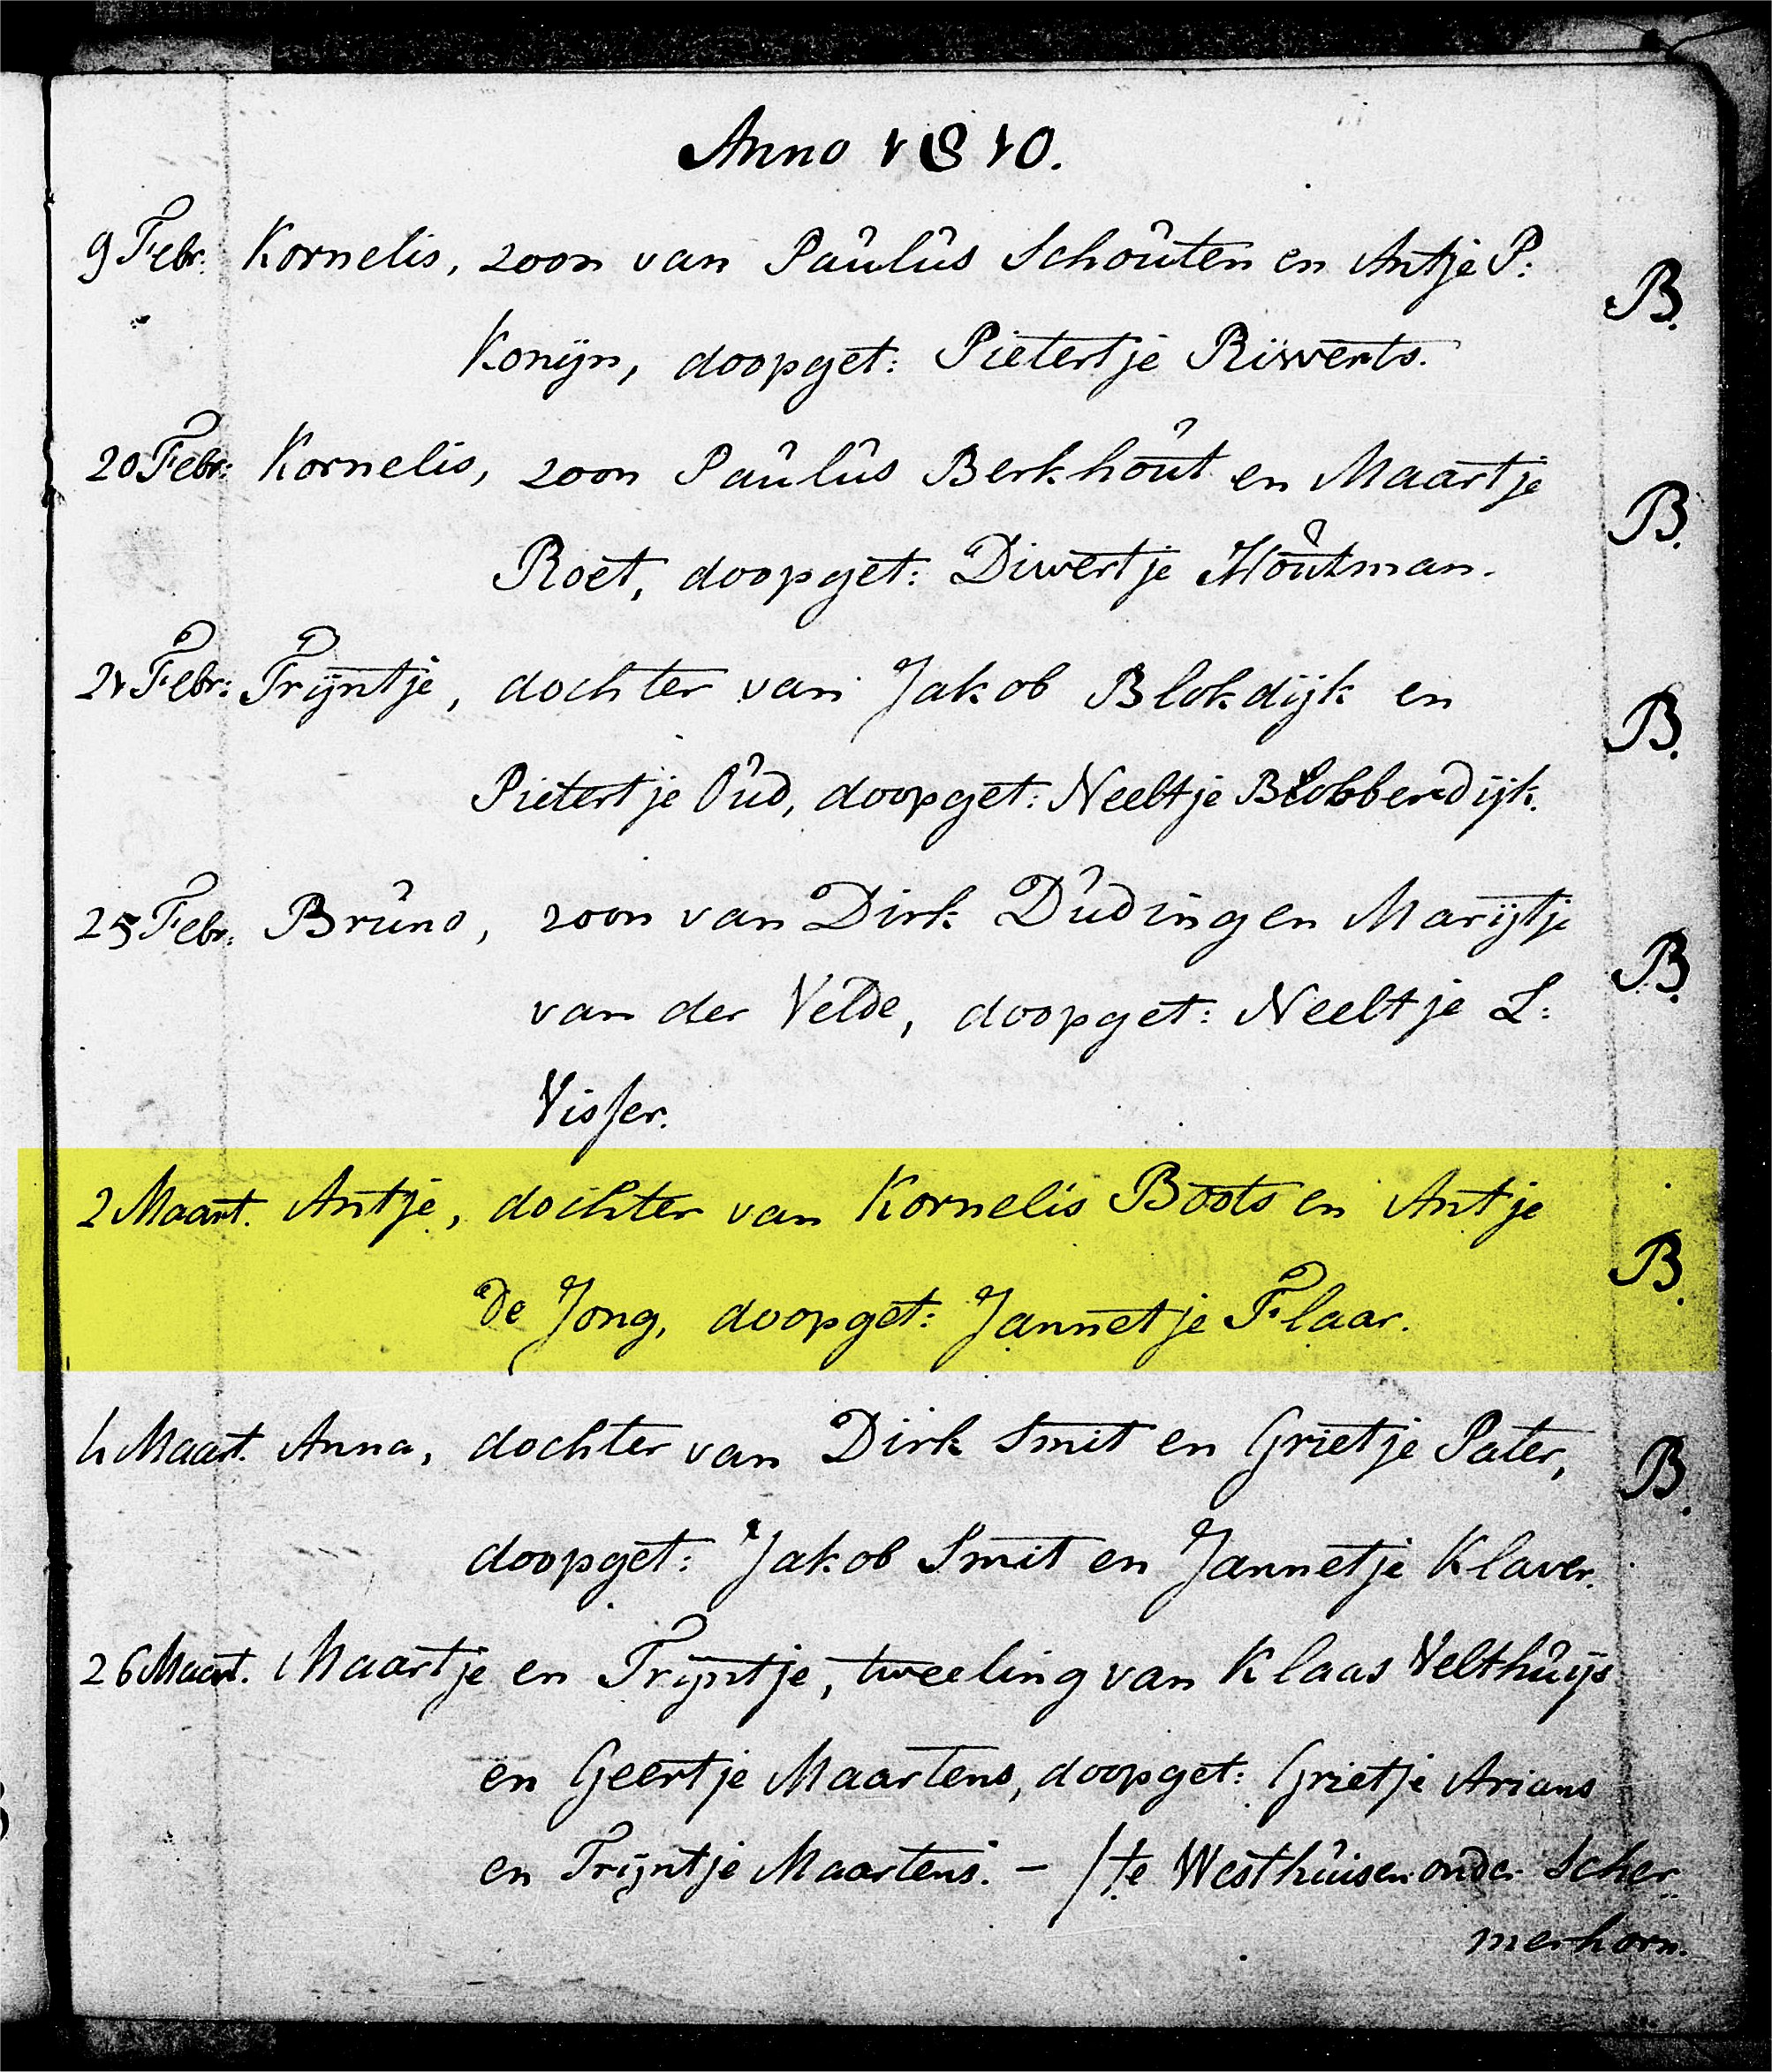 Anno 1810.
9 Febr. Kornelis, zoon van Paulus Schouten en Antje P:
Konijn, doopget: Pietertje Riwerts. B.
20 Febr: Kornelis, zoon Paulus Berkhout en Maartje
Roet, doopget: Diwertje Houtman. B.
21 Febr: Trijntje, dochter van Jakob Blokdijk en
Pietertje Oud, doopget: Neeltje Blobberdijk. B.
25 Febr: Bruno, zoon van Dirk Duding en Marijtje
van der Velde, doopget: Neeltje L: B.
Visser.
2 Maart. Antje, dochter van Kornelis Boots en Antje
de Jong, doopget: Jannetje Flaar. B.
4 Maart. Anna, dochter van Dirk Smit en Grietje Pater, B.
doopget: Jakob Smit en Jannetje Klaver.
26 Maart. Maartje en Trijntje, tweeling van Klaas Velthuijs
en Geertje Maartens, doopget: Grietje Arians
en Trijntje Maartens. – /te Westhuisen onder Scher
merhorn.